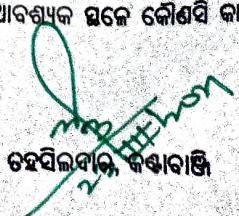 ଆବଶ୍ୟକ ସ୍ଥଳେ କୌଣସି କା
ତହସିଲଦାର, କଣ୍ଟାବାଞ୍ଜି